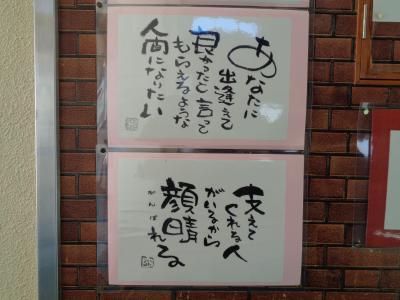 あなたに
出逢えて
良かったと言って
もらえるような
人間になりたい
支えて
くれる人
がいるから
顔晴れる
がんば